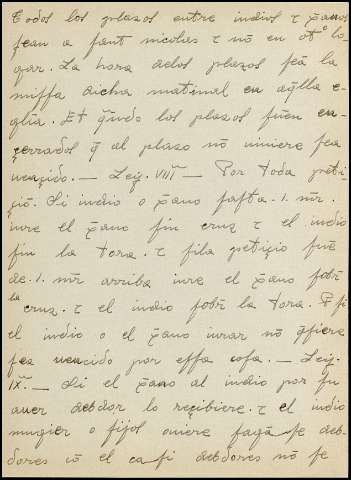 todos los plazos entre indios ⁊ x̄anos
sean a sant nicolas ⁊ nō en ot°o lo-
gar. La hora delos plazos sea la
missa dicha matinal en aq̄lla e-
glīa. Et qn̄do los plazos fuēn en-
çerrados q̄ al plazo nō viniere sea
vençido. — Ley. VIII — Por toda peti-
çiō. Si indio o x̄ano fasta .1. mr̄.
iure el x̄ano sin cruz ⁊ el indio
sin la tora. ⁊ si la petiçio fuē
de .1. mr̄ arriba iure el x̄ano sobr̄
la cruz. ⁊ el indio sobr̄ la tora. ⁊ si
el indio o el x̄ano iurar nō q̄siere
sea vencido por essa cosa. — Ley.
IX. — Si el x̄ano al indio por su
auer debdor lo reçibiere. ⁊ el indio
mugier o fijos ouiere fagā se deb-
dores cō el ca si debdores nō se